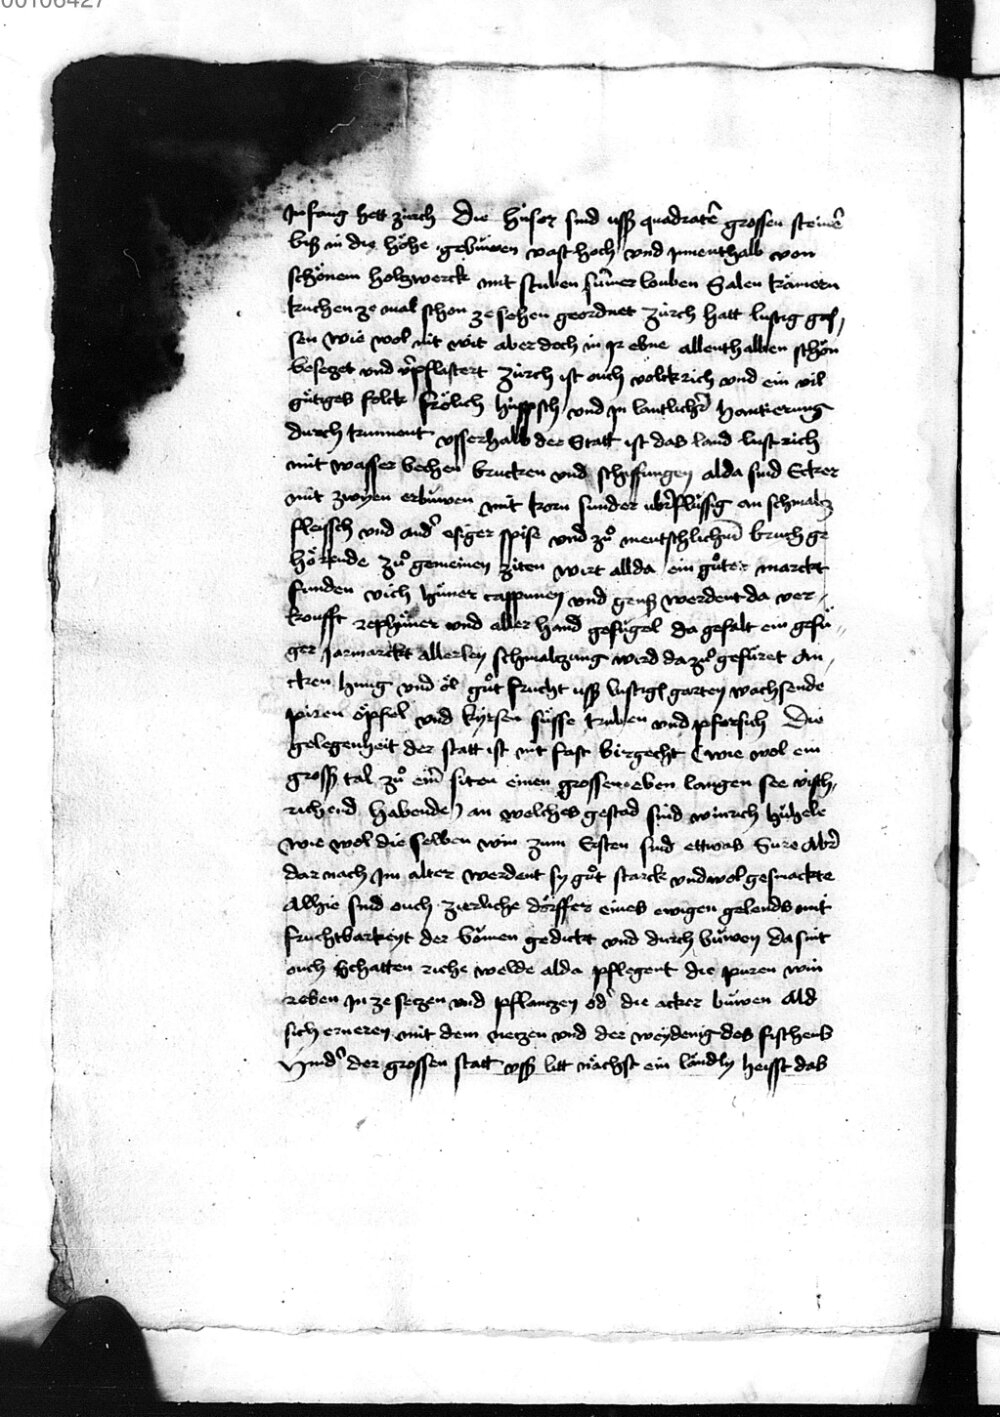 00106427
Jnfang hett zürch Die hüser sind uß quadratē grossen steinē
biß in die höhe gebuwen vast hoch vnd jnnenthalb von
schönem holtzwerck mit stuben sum̄er louben Salen kämern
kuchen ze mal schon ze sehen geordnet zürch hatt lustig gas,
sen wie wol nit wit aber doch in jr ebne allenthalben schön
beseczet vnd v̄pflastert zürch ist ouch volckrich vnd ein vil
gütiges folck frölich hüppsch vnd jn hantierung
durch vsserhalb der Statt ist das land lustrich
mit wasser bechen brucken vnd schiffungen alda sind Ecker
mit zwyen erbuwen mit korn sunder ubrflüssig an schmaltz
fleissch vnd andr esiger spise vnd zů mentschlichem bruch ge
hörende zů gemeinen ziten wirt allda ein gůter marckt
funden vich hüner cappunen vnd genß werdent da ver-
koufft rephüner vnd aller hand gefügel da gefalt ein gefü-
ger Jarmarckt allerley schmaltzung wird da zů gefüret An,
cken hung vnd öl gůt frucht uß lustigē garten wachsende
piren öpfel vnd kyrsen süsse truben vnd pfersich Die
gelegenheit der statt ist nit fast birgecht (wie wol ein
groß tal zů ein̄ siten einen grossen eben langen see visch,
richend habende) an welches gestad sind winrich bühele
wie wol die selben win zum Ersten sind ettwas Sure Abr
dar nach jm alter werdent sy gůt starck vnd wol gesmackte
Alhie sind ouch zierliche dörffer eines ewigen gelends mit
fruchtbarkeyt der bömen gedickt vnd durch buwen da sint
ouch schatten riche welde alda pflegent die puren win
reben jn ze setzen vnd pflantzen odr die acker buwen Ald
sich erneren mit dem netzen vnd der weydenig des fischens
Hindr der grossen statt vß litt nächst ein ländly heisst das